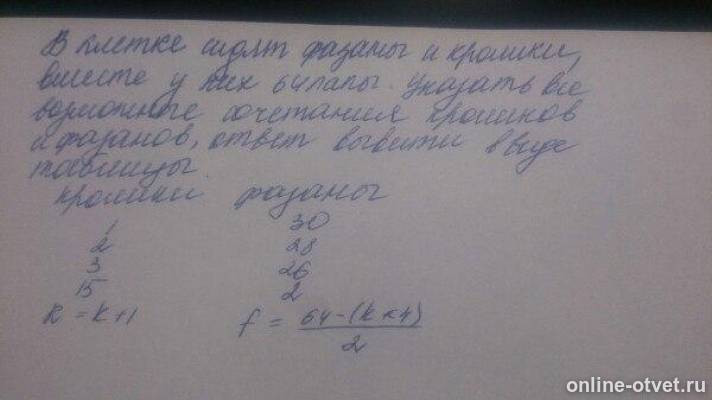 В клетке сидят фазаны и кролики,
вместе у них 64 лапы. Указать все
возможные сочетания кроликов
и фазанов, ответ вывести в виде
таблицы.
кролики фазаны
1 30
2 28
3 26
15 2
k = k+1 f = 64-(k×4)
2
online-otvet.ru